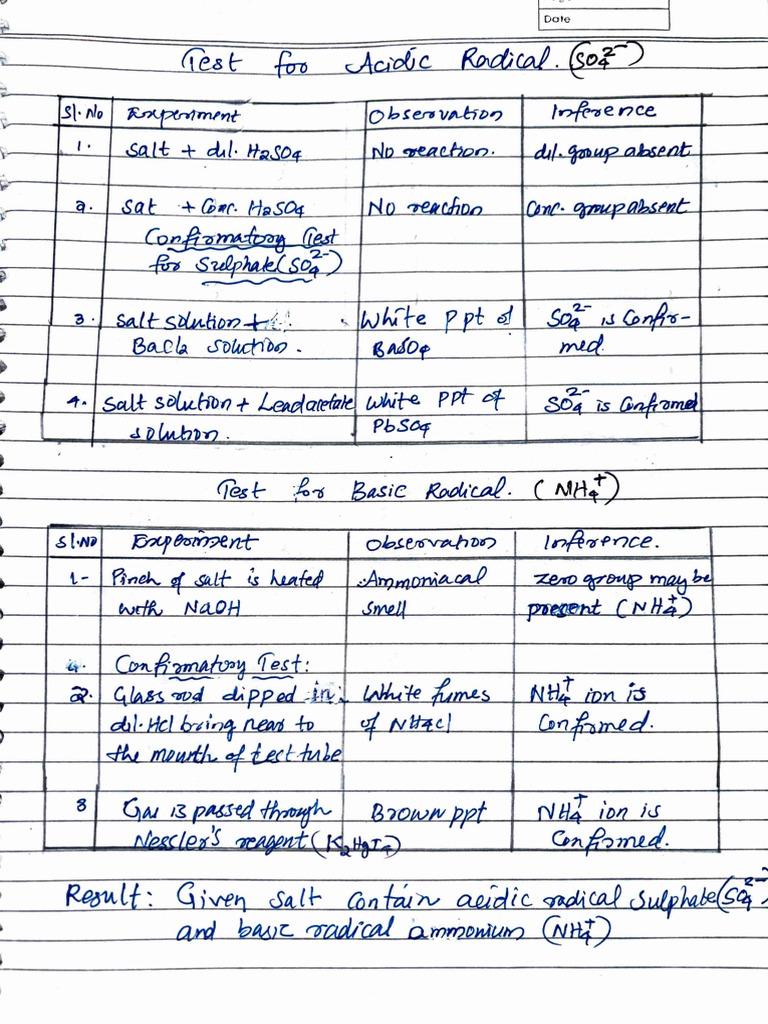 Date
Test for Acidic Radical. (SO₄²⁻)
Sl.No Experiment Observation Inference
1. Salt + dil. H₂SO₄ No reaction. dil. group absent
2. Sat + Conc. H₂SO₄ No reaction Conc. group absent
Confirmatory Test
for Sulphate (SO₄²⁻)
3. Salt solution + White ppt of SO₄²⁻ is Confir-
BaCl₂ solution. BaSO₄ med.
4. Salt solution + Lead acetate White ppt of SO₄²⁻ is Confirmed
solution. PbSO₄
Test for Basic Radical. (NH₄⁺)
Sl.NO Experiment Observation Inference.
1- Pinch of salt is heated Ammoniacal zero group may be
with NaOH smell present (NH₄⁺)
Confirmatory Test:
2. Glass rod dipped in White fumes NH₄⁺ ion is
dil. Hcl bring near to of NH4cl Confirmed.
the mourth of test tube
3 Gas is passed through Brown ppt NH₄⁺ ion is
Nessler's reagent (K₂HgI₄) Confirmed.
Result: Given salt contain acidic radical sulphate (SO₄²⁻)
and basic radical ammonium (NH₄⁺)